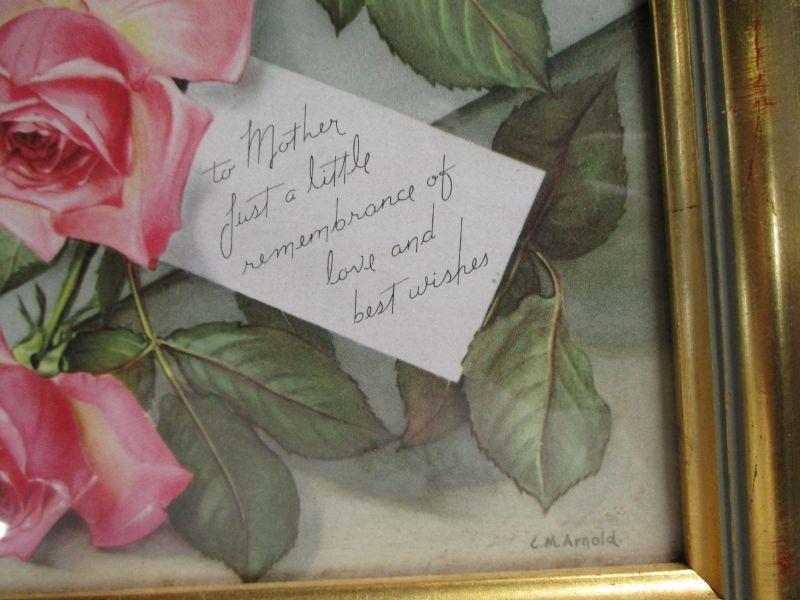 to Mother
Just a little
remembrance of
love and
best wishes
C.M. Arnold.